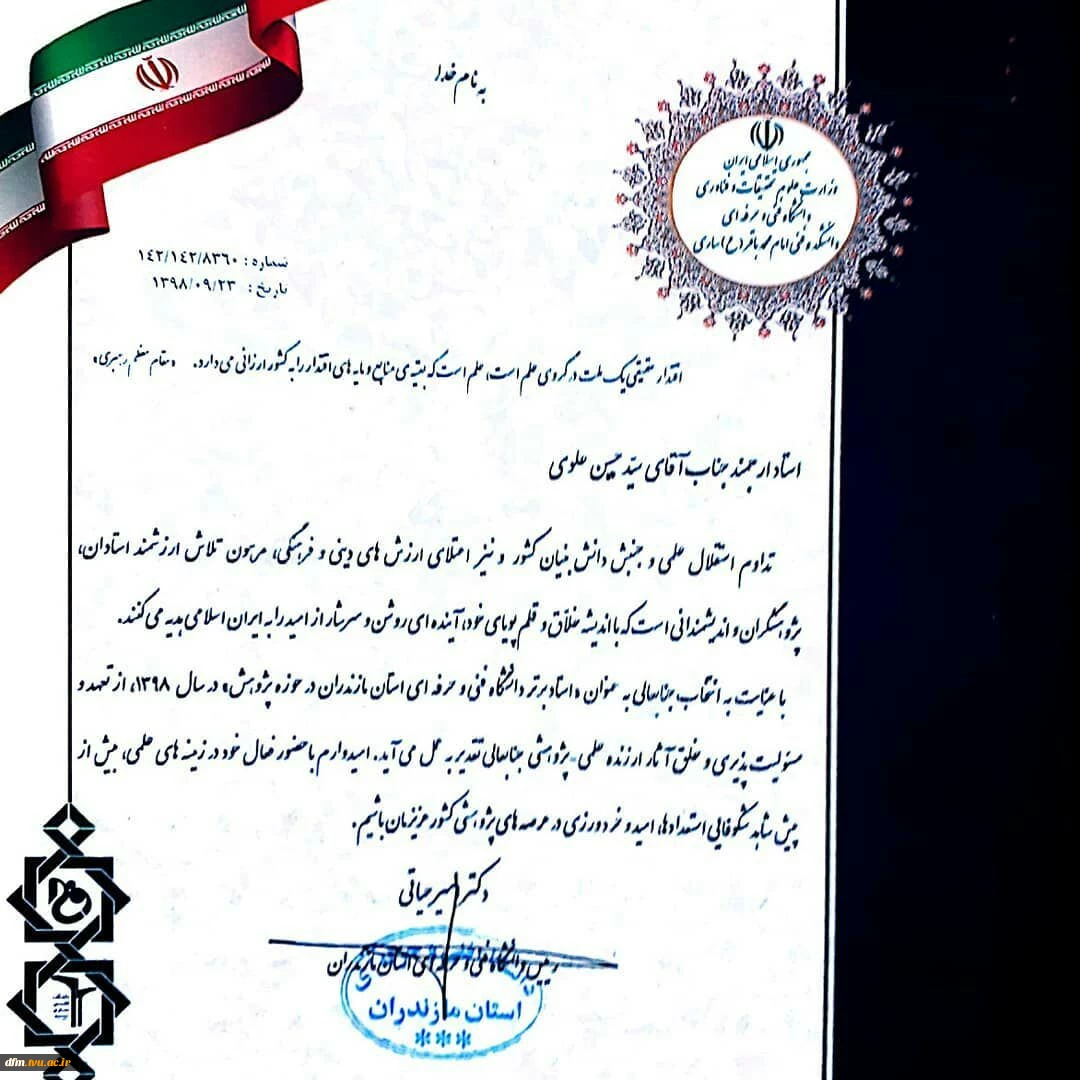 به نام خدا
جمهوری اسلامی ایران
وزارت علوم تحقیقات و فناوری
دانشگاه فنی و حرفه ای
دانشکده فنی امام محمد باقر (ع) ساری
شماره : ۱۴۲/۱۴۲/۸۳۶۰
تاریخ : ۱۳۹۸/۰۹/۲۳
اقتدار حقیقی یک ملت در گروی علم است، علم است که بقیه ی منابع و مایه های اقتدار را به کشور ارزانی می دارد. «مقام معظم رهبری»
استاد ارجمند جناب آقای سیّد حسین علوی
تداوم استقلال علمی و جنبش دانش بنیان کشور و نیز اعتلای ارزش های دینی و فرهنگی، مرهون تلاش ارزشمند استادان،
پژوهشگران و اندیشمندانی است که با اندیشه خلّاق و قلم پویای خود، آینده ای روشن و سرشار از امید را به ایران اسلامی هدیه می کنند.
با عنایت به انتخاب جنابعالی به عنوان «استاد برتر دانشگاه فنی و حرفه ای استان مازندران در حوزه پژوهش» در سال ۱۳۹۸، از تعهد و
مسئولیت پذیری و خلق آثار ارزنده علمی-پژوهشی جنابعالی تقدیر به عمل می آید. امیدوارم با حضور فعال خود در زمینه های علمی، بیش از
پیش شاهد شکوفایی استعدادها، امید و خردورزی در عرصه های پژوهشی کشور عزیزمان باشیم.
دکتر امیر حیاتی
رئیس دانشگاه فنی و حرفه ای استان مازندران
استان مازندران
***
dfm.tvu.ac.ir